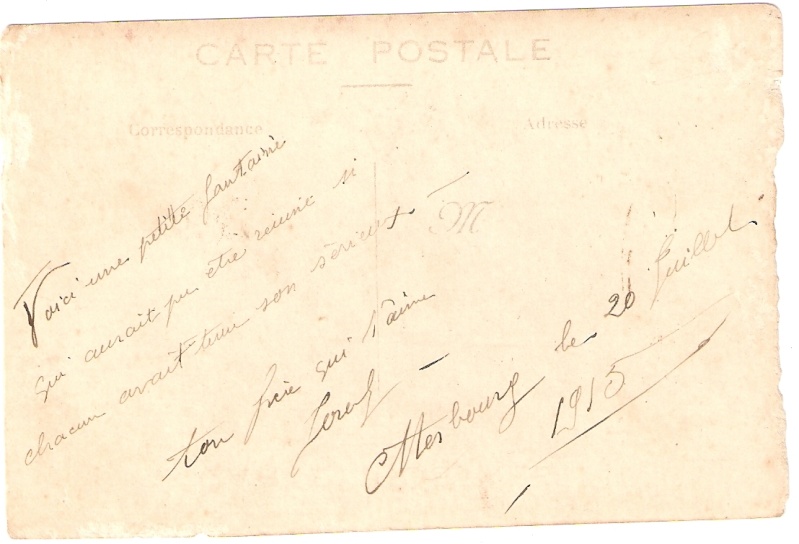 CARTE POSTALE
Correspondance
Adresse
M
Voici une petite fantaisie
qui aurait pu être réunie si
chacun avait tenu son sérieux
ton frère qui t'aime
Mersbourg le 20 Juillet
1915